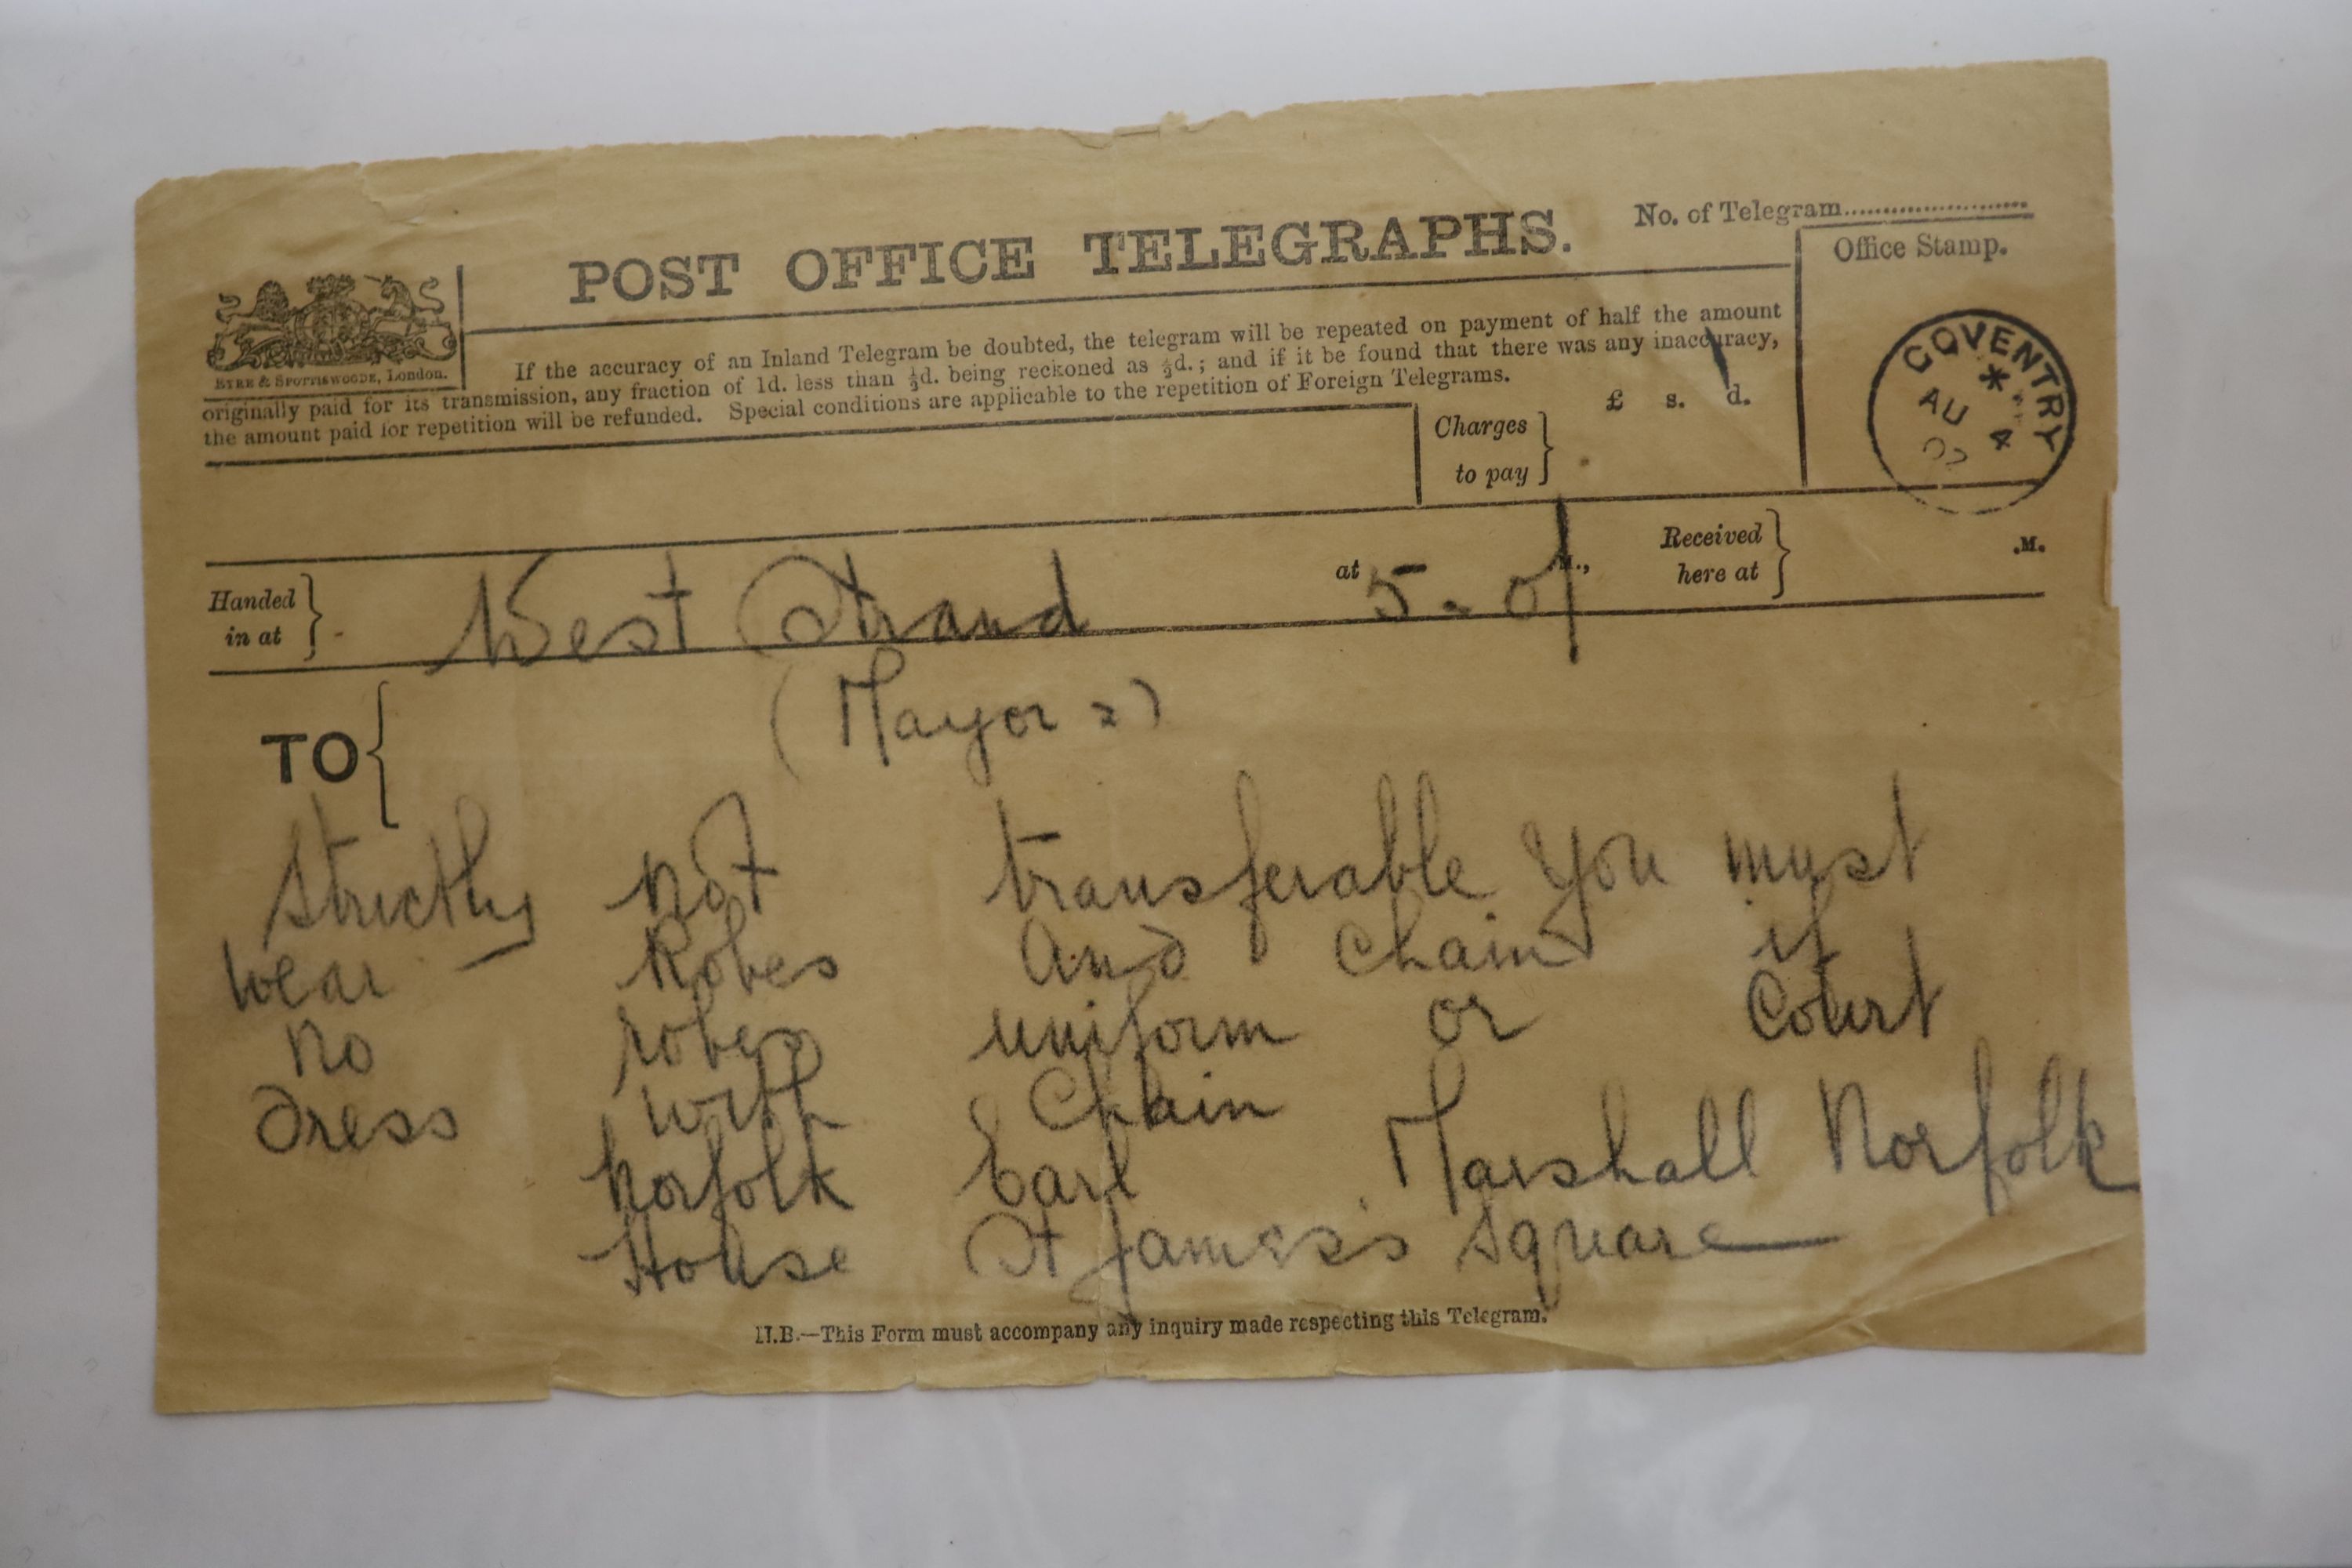 POST OFFICE TELEGRAPHS.
No. of Telegram
Office Stamp.
EYRE & SPOTTISWOODE, London.
If the accuracy of an Inland Telegram be doubted, the telegram will be repeated on payment of half the amount
originally paid for its transmission, any fraction of 1d. less than ½d. being reckoned as ½d.; and if it be found that there was any inaccuracy,
the amount paid for repetition will be refunded. Special conditions are applicable to the repetition of Foreign Telegrams.
Charges to pay
£ s. d.
COVENTRY
AU 4
02
Handed in at
West Strand
at 5-0
Received here at
.M.
TO
(Mayor =)
Strictly not transferable You must
wear Robes and Chain if
no robes uniform or Court
dress with Chain
Norfolk Earl Marshall Norfolk
House St James's Square
N.B.—This Form must accompany any inquiry made respecting this Telegram.